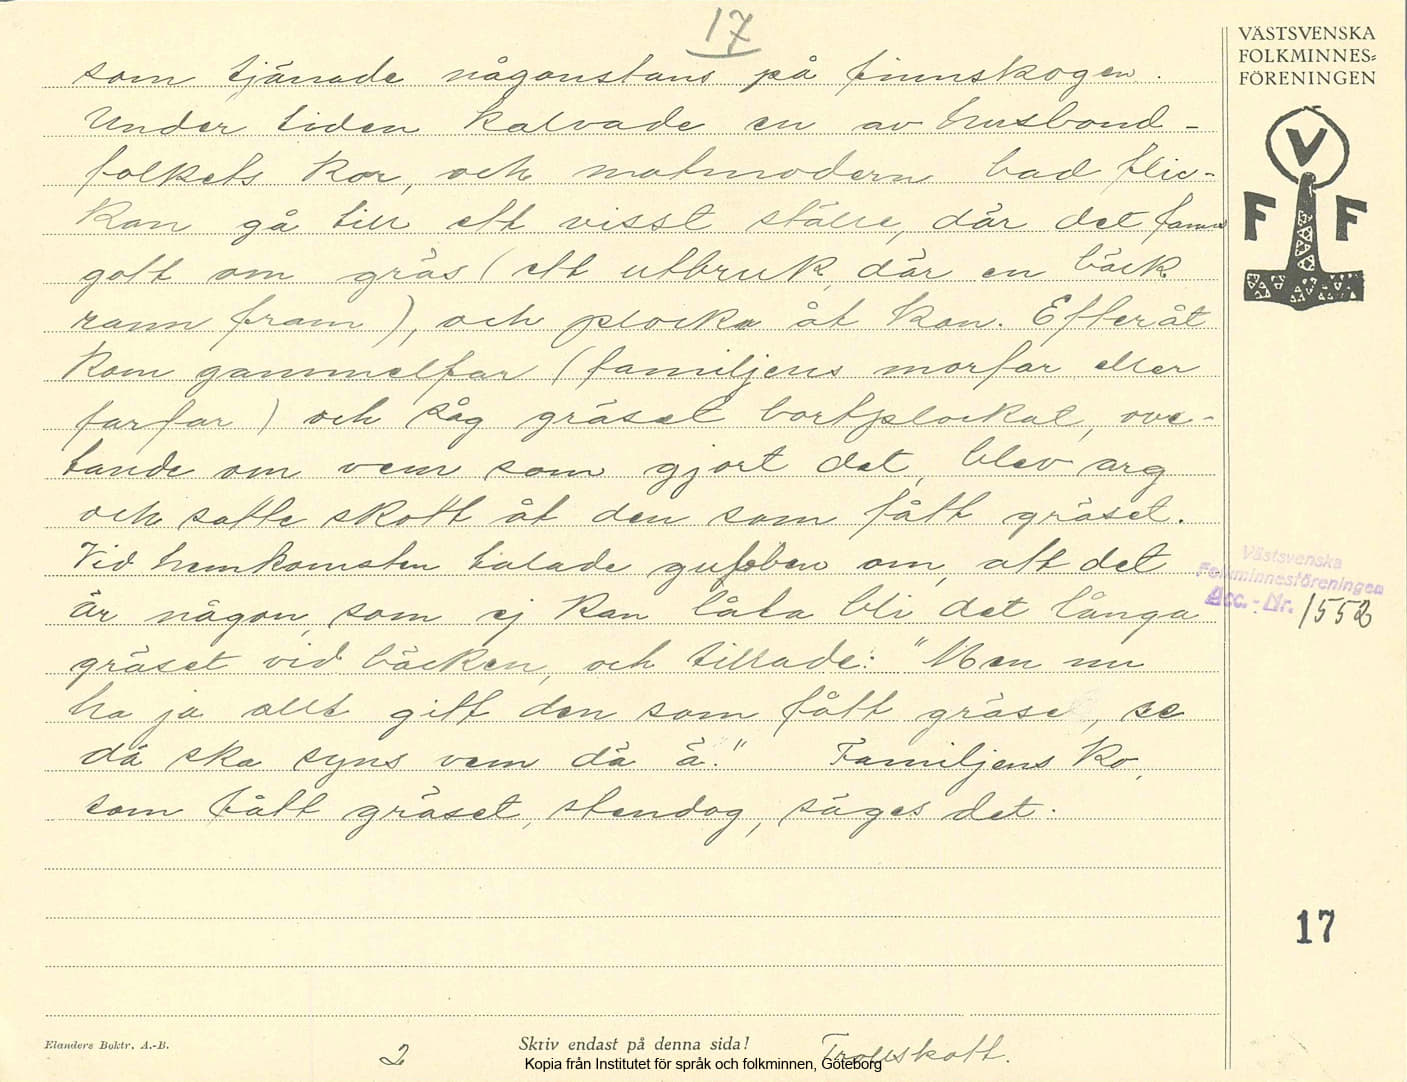 17
VÄSTSVENSKA
FOLKMINNES=
FÖRENINGEN
V
F F
som tjänade någonstans på finnskogen.
Under tiden kalvade en av husbond-
folkets kor, och matmodern bad flic-
kan gå till ett visst ställe, där det fanns
gott om gräs (ett utbruk, där en bäck
rann fram), och plocka åt kon. Efteråt
kom gammelfar (familjens morfar eller
farfar) och såg gräset bortplockat, ove-
tande om vem som gjort det, blev arg
och satte skott åt den som fått gräset.
Vid hemkomsten talade gubben om, att det
är någon, som ej kan låta bli det långa
gräset vid bäcken, och tillade: "Men nu
ha ja allt gitt den som fått gräse, se
dä ska syns vem dä ä." Familjens ko,
som fått gräset, stendog, säges det.
Västsvenska
Folkminnesföreningen
Acc. - Nr. 1552
17
Elanders Boktr. A.-B.
2
Skriv endast på denna sida!
Trollskott.
Kopia från Institutet för språk och folkminnen, Göteborg